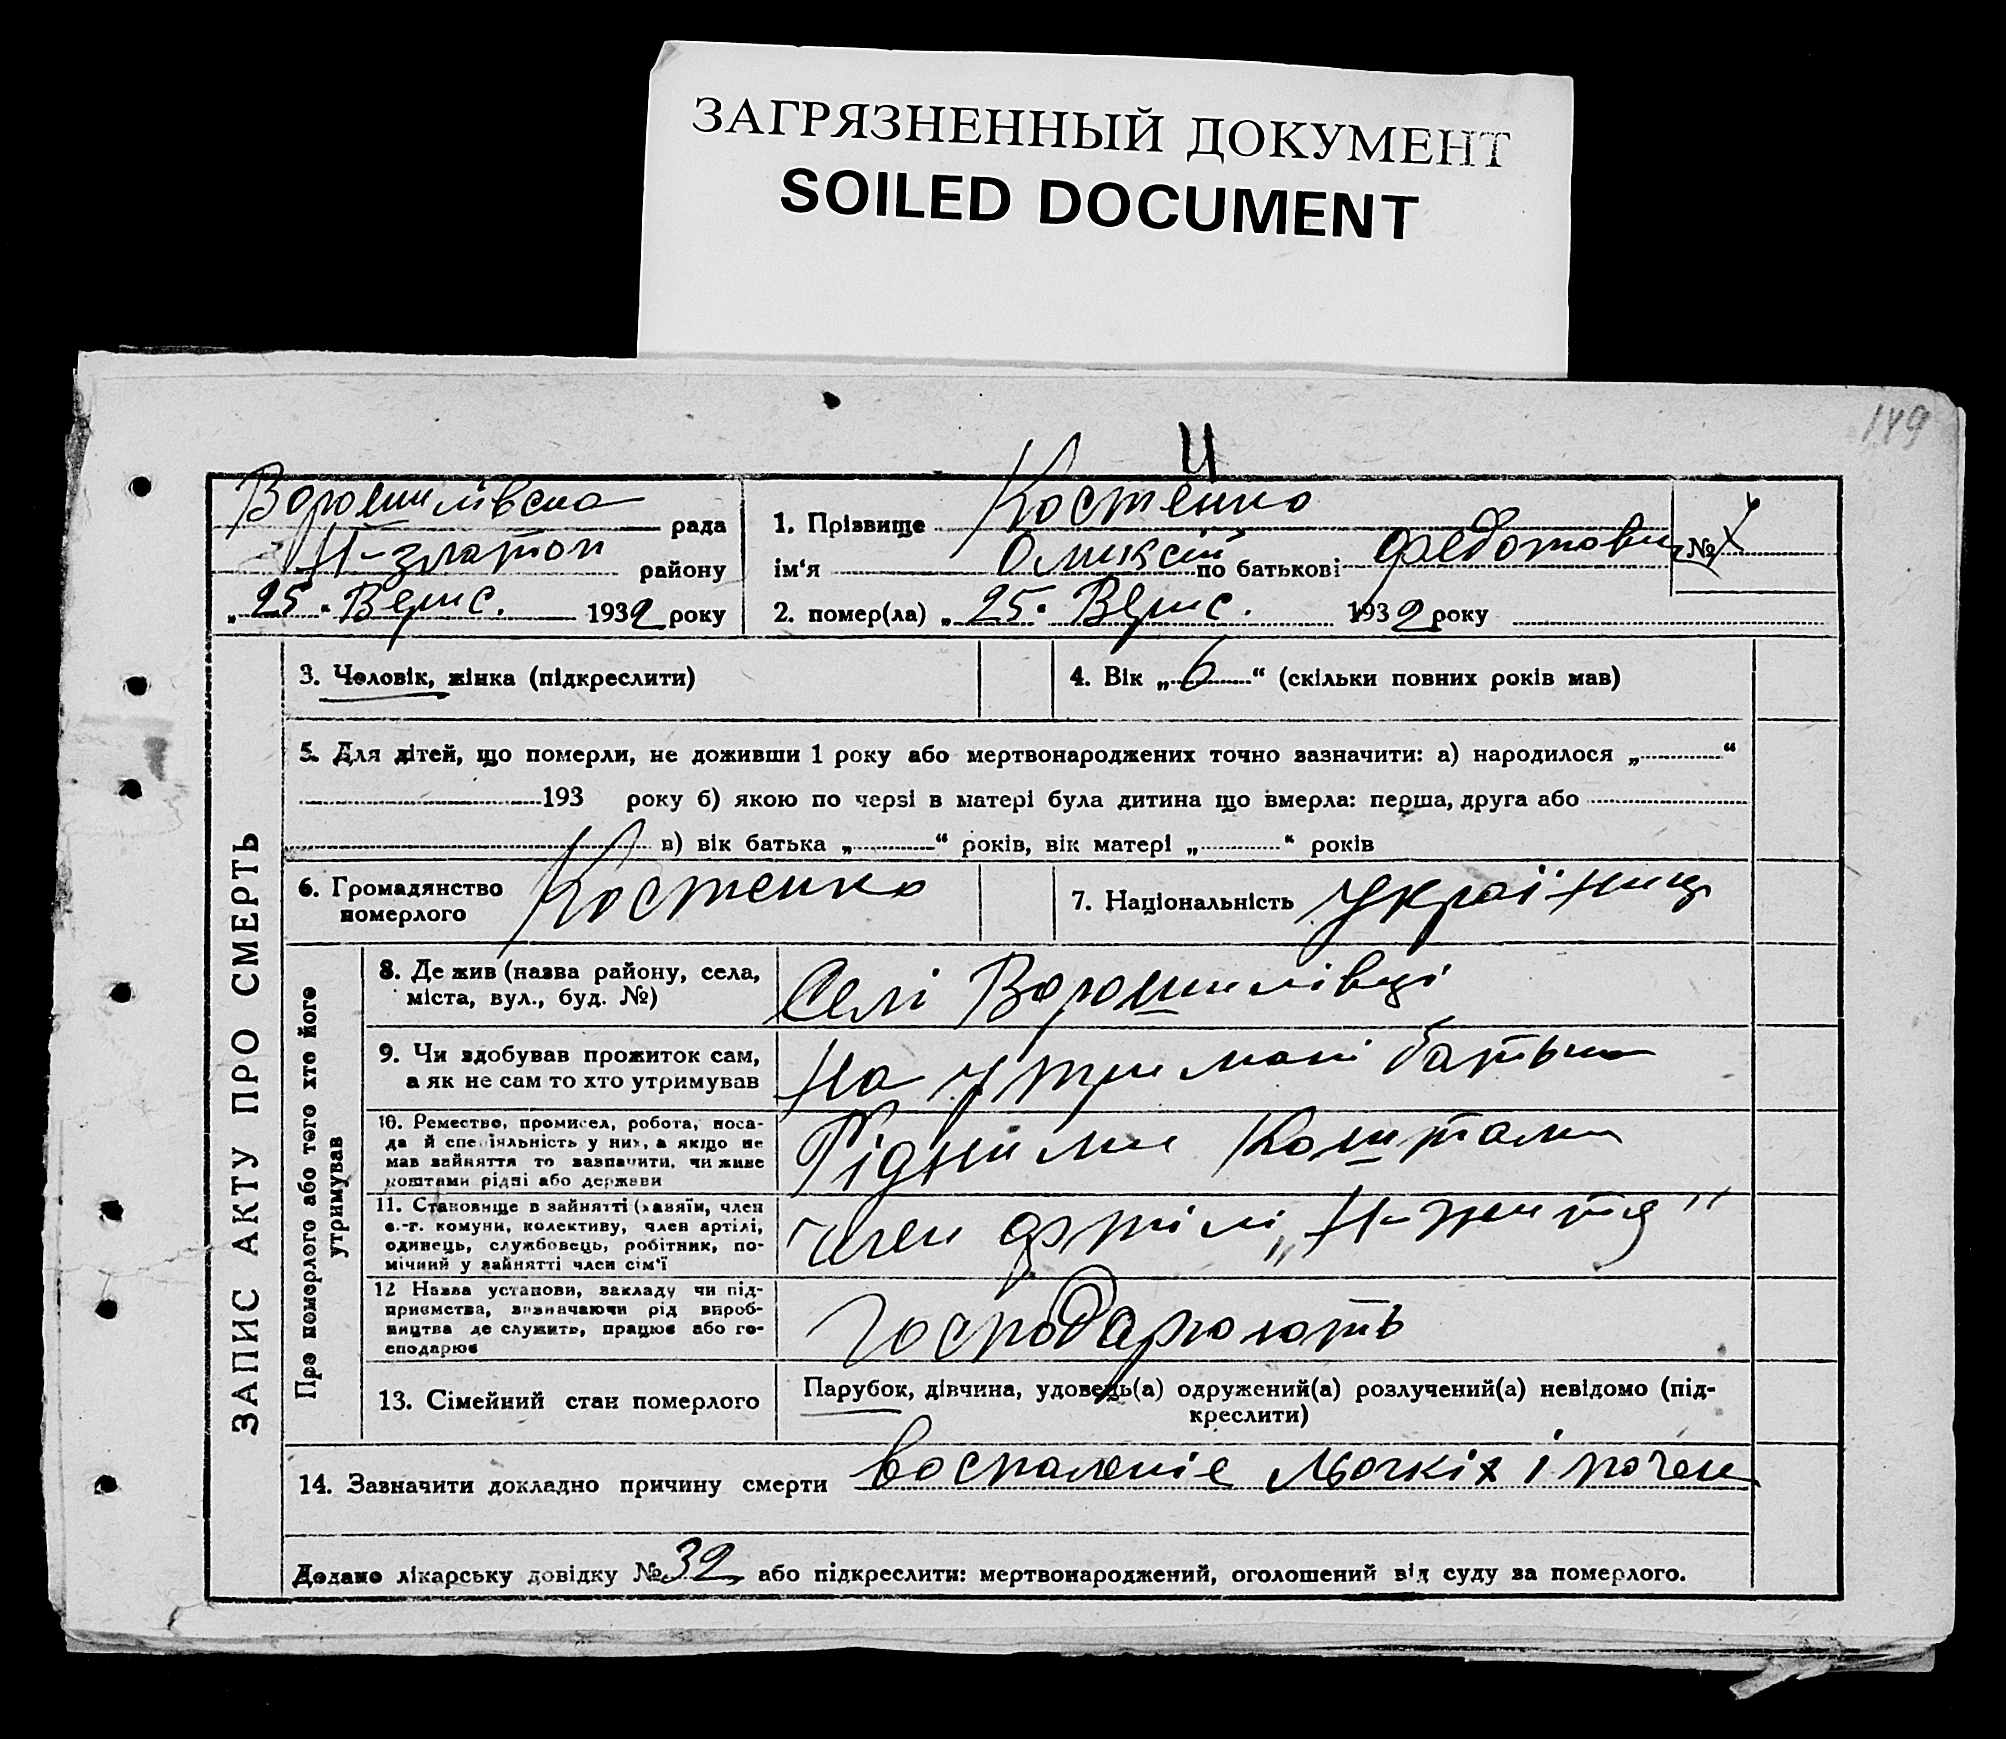 ЗАГРЯЗНЕННЫЙ ДОКУМЕНТ
SOILED DOCUMENT
149
Ч
Ворошилівська рада
Н-златоп району
„25. Верес. 1932 року
1. Прізвище Костенко
ім‘я Оликсій по батькові Федотович
2. помер(ла) „25. Верес. 1932 року
№
ЗАПИС АКТУ ПРО СМЕРТЬ
3. Чоловік, жінка (підкреслити)
4. Вік „6“ (скільки повних років мав)
5. Для дітей, що померли, не доживши 1 року або мертвонароджених точно зазначити: а) народилося „ “
193 року б) якою по черзі в матері була дитина що вмерла: перша, друга або
в) вік батька „ “ років, вік матері „ “ років
6. Громадянство
померлого
Костенко
7. Національність Україниц
Про померлого або того хто його
утримував
8. Де жив (назва району, села,
міста, вул., буд. №)
Селі Ворошилівці
9. Чи здобував прожиток сам,
а як не сам то хто утримував
На утримані батька
10. Ремество, промисел, робота, поса-
да й спеціяльність у них, а якщо не
мав зайняття то зазначити, чи живе
коштами рідні або держави
Рідними коштами
11. Становище в зайнятті (хазяїн, член
с.-г. комуни, колективу, член артілі,
одинець, службовець, робітник, по-
мічний у зайнятті член сім‘ї
член артілі „Н-життя"
12 Назва установи, закладу чи під-
приємства, визначаючи рід вироб-
ництва де служить, працює або го-
сподарює
Господарюють
13. Сімейний стан померлого
Парубок, дівчина, удовець(а) одружений(а) розлучений(а) невідомо (під-
креслити)
14. Зазначити докладно причину смерти воспаленіе льогкіх і почек
Додано лікарську довідку № 32 або підкреслити: мертвонароджений, оголошений від суду за померлого.